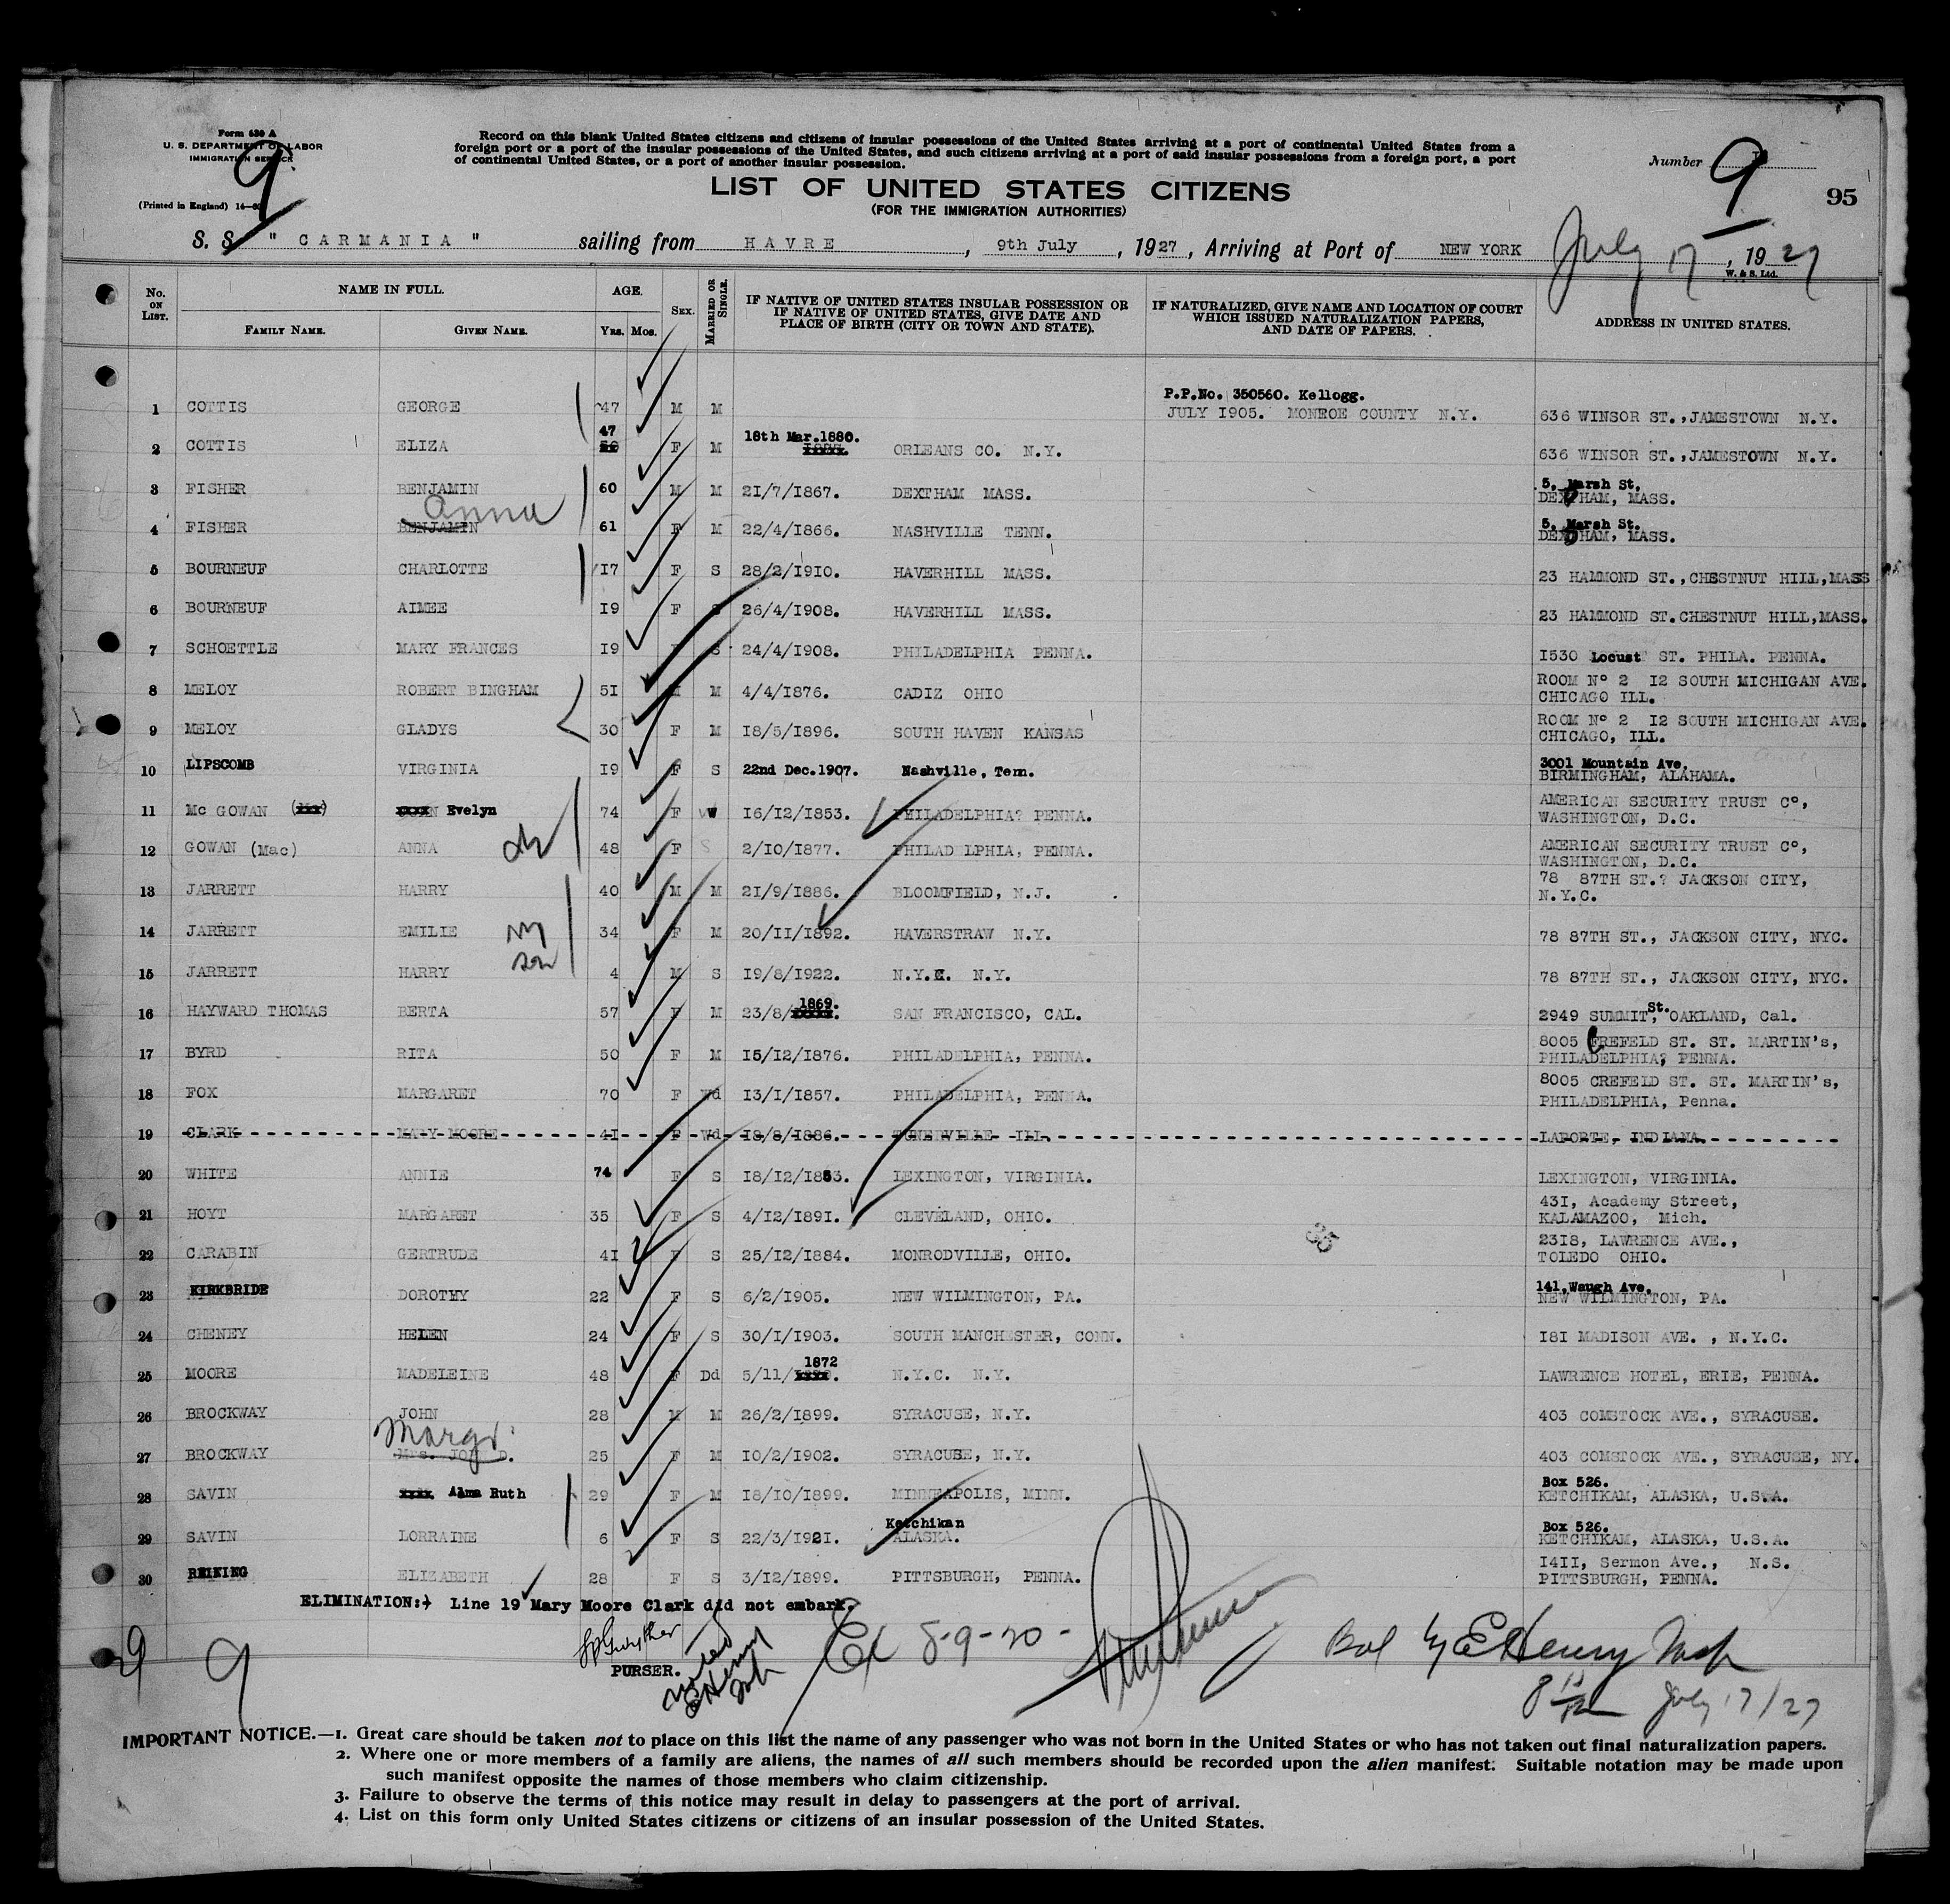 Form 630 A
U. S. DEPARTMENT OF LABOR
IMMIGRATION SERVICE
(Printed in England)
9
Record on this blank United States citizens and citizens of insular possessions of the United States arriving at a port of continental United States from a
foreign port or a port of the insular possessions of the United States, and such citizens arriving at a port of said insular possessions from a foreign port, a port
of continental United States, or a port of another insular possession.
Number 9
95
LIST OF UNITED STATES CITIZENS
(FOR THE IMMIGRATION AUTHORITIES)
S. S. " CARMANIA " sailing from HAVRE, 9th July, 1927, Arriving at Port of NEW YORK July 17, 1927
W. & S. Ltd.
No. ON LIST. NAME IN FULL. FAMILY NAME. GIVEN NAME. AGE. Yrs. Mos. SEX. MARRIED OR SINGLE. IF NATIVE OF UNITED STATES INSULAR POSSESSION OR IF NATIVE OF UNITED STATES, GIVE DATE AND PLACE OF BIRTH (CITY OR TOWN AND STATE). IF NATURALIZED, GIVE NAME AND LOCATION OF COURT WHICH ISSUED NATURALIZATION PAPERS, AND DATE OF PAPERS. ADDRESS IN UNITED STATES.
P.P.No. 350560. Kellogg.
1 COTTIS GEORGE 47 M M JULY I905. MONROE COUNTY N.Y. 636 WINSOR ST.,JAMESTOWN N.Y.
47 18th Mar.1880.
2 COTTIS ELIZA F M ORLEANS CO. N.Y. 636 WINSOR ST.,JAMESTOWN N.Y.
5, Marsh St.
3 FISHER BENJAMIN 60 M M 2I/7/I867. DEXTHAM MASS. DEDHAM, MASS.
Anna 5, Marsh St.
4 FISHER BENJAMIN 61 F M 22/4/I866. NASHVILLE TENN. DEDHAM, MASS.
5 BOURNEUF CHARLOTTE I7 F S 28/2/I9I0. HAVERHILL MASS. 23 HAMMOND ST.,CHESTNUT HILL,MASS
6 BOURNEUF AIMEE I9 F S 26/4/I908. HAVERHILL MASS. 23 HAMMOND ST.CHESTNUT HILL,MASS.
7 SCHOETTLE MARY FRANCES I9 S 24/4/I908. PHILADELPHIA PENNA. I530 Locust ST. PHILA. PENNA.
8 MELOY ROBERT BINGHAM 5I M M 4/4/I876. CADIZ OHIO ROOM Nº 2 I2 SOUTH MICHIGAN AVE.
CHICAGO ILL.
9 MELOY GLADYS 30 F M I8/5/I896. SOUTH HAVEN KANSAS ROOM Nº 2 I2 SOUTH MICHIGAN AVE.
CHICAGO, ILL.
10 LIPSCOMB VIRGINIA I9 F S 22nd Dec.1907. Nashville, Tenn. 3001 Mountain Ave.
BIRMINGHAM, ALAHAMA.
11 Mc GOWAN (xxx) Evelyn 74 F W I6/I2/I853. PHILADELPHIA? PENNA. AMERICAN SECURITY TRUST Cº,
WASHINGTON, D.C.
12 GOWAN (Mac) ANNA 48 F S 2/I0/I877. PHILAD LPHIA, PENNA. AMERICAN SECURITY TRUST Cº,
WASHINGTON, D.C.
13 JARRETT HARRY 40 M M 2I/9/I886. BLOOMFIELD, N.J. 78 87TH ST.? JACKSON CITY,
N.Y.C.
14 JARRETT EMILIE 34 F M 20/II/I892. HAVERSTRAW N.Y. 78 87TH ST., JACKSON CITY, NYC.
son
15 JARRETT HARRY 4 M S I9/8/I922. N.Y.C. N.Y. 78 87TH ST., JACKSON CITY, NYC.
1869.
16 HAYWARD THOMAS BERTA 57 F M 23/8/ SAN FRANCISCO, CAL. 2949 SUMMIT St., OAKLAND, Cal.
17 BYRD RITA 50 F M I5/I2/I876. PHILADELPHIA, PENNA. 8005 CREFELD ST. ST. MARTIN's,
PHILADELPHIA? PENNA.
18 FOX MARGARET 70 F Wd I3/I/I857. PHILADELPHIA, PENNA. 8005 CREFELD ST. ST. MARTIN's,
PHILADELPHIA, Penna.
19 CLARK MARY MOORE 4I F Wd I8/8/I886. ILL. LAPORTE, INDIANA.
20 WHITE ANNIE 74 F S I8/I2/I853. LEXINGTON, VIRGINIA. LEXINGTON, VIRGINIA.
21 HOYT MARGARET 35 F S 4/I2/I89I. CLEVELAND, OHIO. 43I, Academy Street,
KALAMAZOO, Mich.
35
22 CARABIN GERTRUDE 4I F S 25/I2/I884. MONRODVILLE, OHIO. 23I8, LAWRENCE AVE.,
TOLEDO OHIO.
141,Waugh Ave.
23 KIRKBRIDE DOROTHY 22 F S 6/2/I905. NEW WILMINGTON, PA. NEW WILMINGTON, PA.
24 CHENEY HELEN 24 F S 30/I/I903. SOUTH MANCHESTER, CONN. I8I MADISON AVE. , N.Y.C.
1872
25 MOORE MADELEINE 48 F Dd 5/11/ N.Y.C. N.Y. LAWRENCE HOTEL, ERIE, PENNA.
26 BROCKWAY JOHN 28 M M 26/2/I899. SYRACUSE, N.Y. 403 COMSTOCK AVE., SYRACUSE.
Margt.
27 BROCKWAY Mrs. JOHN D. 25 F M I0/2/I902. SYRACUSE, N.Y. 403 COMSTOCK AVE., SYRACUSE, NY.
Box 526.
28 SAVIN Alma Ruth 29 F M I8/I0/I899. MINNEAPOLIS, MINN. KETCHIKAM, ALASKA, U.S.A.
Ketchikan Box 526.
29 SAVIN LORRAINE 6 F S 22/3/I921. ALASKA. KETCHIKAM, ALASKA, U.S.A.
30 REIKING ELIZABETH 28 F S 3/I2/I899. PITTSBURGH, PENNA. I4II, Sermon Ave., N.S.
PITTSBURGH, PENNA.
ELIMINATION:- Line 19 Mary Moore Clark did not embark.
9 9 Ex 8-9-20- E Henry
PURSER.
July 17/27
IMPORTANT NOTICE.—1. Great care should be taken not to place on this list the name of any passenger who was not born in the United States or who has not taken out final naturalization papers.
2. Where one or more members of a family are aliens, the names of all such members should be recorded upon the alien manifest. Suitable notation may be made upon
such manifest opposite the names of those members who claim citizenship.
3. Failure to observe the terms of this notice may result in delay to passengers at the port of arrival.
4. List on this form only United States citizens or citizens of an insular possession of the United States.